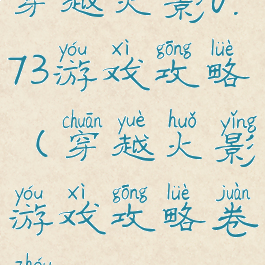 穿越火影0.
yóu xì gōng lüè
73游戏攻略
chuān yuè huǒ yǐng
(穿越火影
yóu xì gōng lüè juàn
游戏攻略卷
zhóu